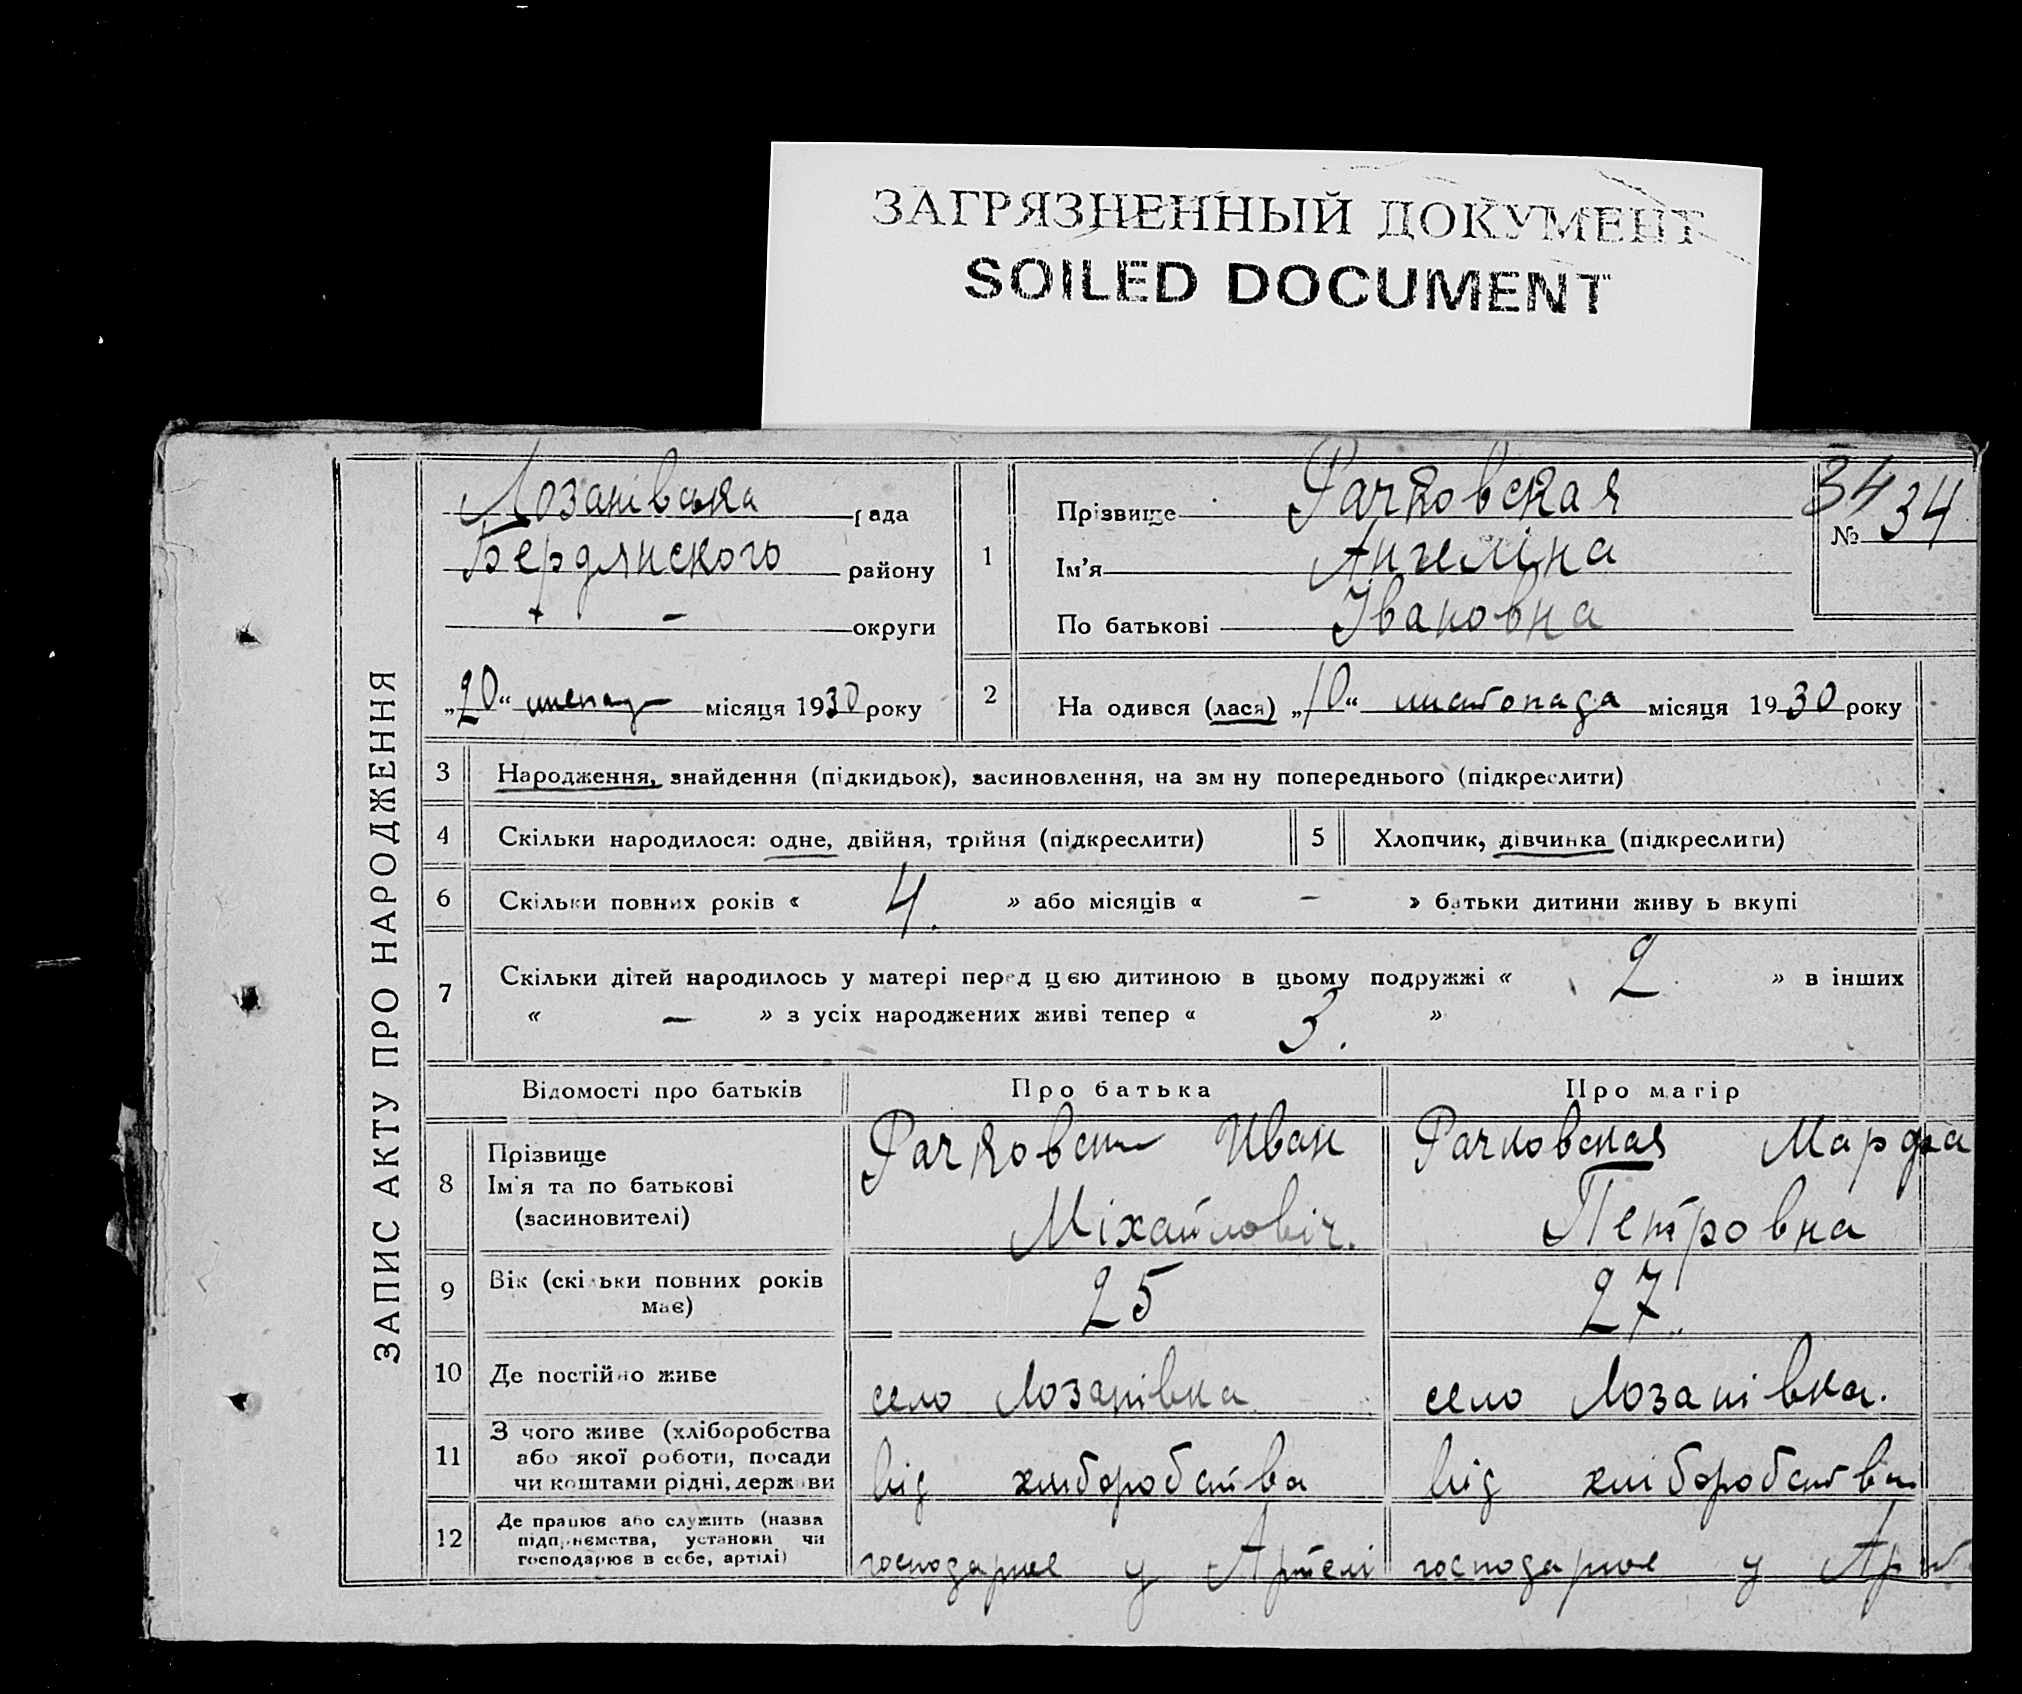 ЗАГРЯЗНЕННЫЙ ДОКУМЕНТ
SOILED DOCUMENT
ЗАПИС АКТУ ПРО НАРОДЖЕННЯ
Лозанівська рада
Бердянского району
— округи
„20“ листопад місяця 1930 року
1
Прізвище Рачковская
Ім'я Ангеліна
По батькові Івановна
34
№ 34
2
На одився (лася) „10“ листопада місяця 1930 року
3 Народження, знайдення (підкидьок), засиновлення, на зм ну попереднього (підкреслити)
4 Скільки народилося: одне, двійня, трійня (підкреслити)
5 Хлопчик, дівчинка (підкреслити)
6 Скільки повних років « 4. » або місяців « — » батьки дитини живу ь вкупі
7 Скільки дітей народилось у матері перед цією дитиною в цьому подружжі « 2 » в інших
« — » з усіх народжених живі тепер « 3. »
Відомості про батьків
Про батька
Про матір
8
Прізвище
Ім'я та по батькові
(засиновителі)
Рачковски Иван
Міхайловіч.
Рачковская Марфа
Петровна
9
Вік (скільки повних років
має)
25
27.
10 Де постійно живе
село Лозанівка
село Лозанівка.
11
З чого живе (хліборобства
або якої роботи, посади
чи коштами рідні, держави
від хліборобства
від хліборобства
12
Де працює або служить (назва
підприємства, установи чи
господарює в себе, артілі)
господарює у Артелі
господарює у Арт